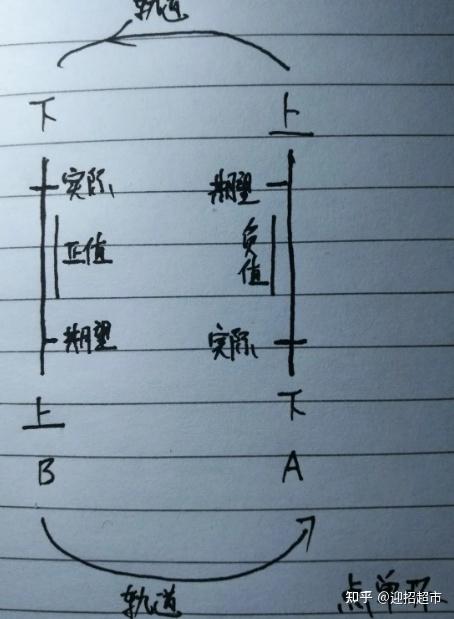 轨道
下 上
实际 期望
正值 负值
期望 实际
上 下
B A
轨道
知乎 @迎招超市